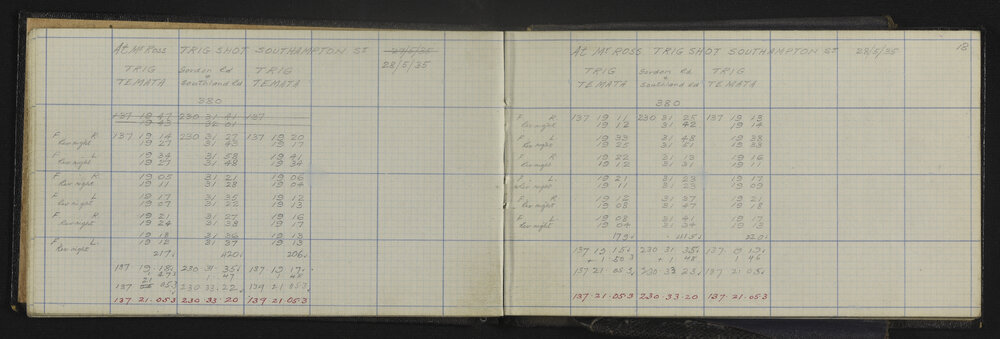 At Mt Ross TRIG SHOT SOUTHAMPTON St 27/5/35
28/5/35
TRIG Gordon Rd TRIG
TEMATA & Southland Rd TEMATA
380
137 19 47 230 31 41 137
19 43 32 01
F R 137 19 14 230 31 27 137 19 20
Rev night 19 27 31 43 19 17
F L 19 34 31 58 19 41
Rev night 19 27 31 48 19 34
F R 19 05 31 21 19 06
Rev night 19 11 31 28 19 04
F L 19 17 31 35 19 12
Rev night 19 07 31 22 19 13
F R 19 21 31 27 19 16
Rev night 19 24 31 38 19 17
19 18 31 36 19 13
F L 19 12 31 37 19 13
Rev night
217 420 206
137 19 18 230 31 35 137 19 17
1 47 1 47 1 48
137 21 05.3 230 33 22 139 21 05.3
137.21.05.3 230.33.20 139.21.05.3
18
At Mt ROSS TRIG SHOT SOUTHAMPTON St 28/5/35
TRIG Gordon Rd TRIG
TEMATA & Southland Rd TEMATA
380
F R 137 19 11 230 31 25 137 19 13
Rev night 19 12 31 42 19 14
F L 19 33 31 48 19 38
Rev night 19 25 31 51 19 33
F R 19 22 31 13 19 16
Rev night 19 12 31 31 19 17
F L 19 21 31 23 19 17
Rev night 19 11 31 23 19 09
F R 19 12 31 37 19 21
Rev night 19 08 31 47 19 18
F L 19 08 31 41 19 17
Rev night 19 04 31 34 19 13
179 415 220
137 19 15 230 31 35 137 19 19
+ 1 50.3 + 1 48 1 46
137 21 05.3 230 33 23 137 21 05
137.21.05.3 230.33.20 137.21.05.3